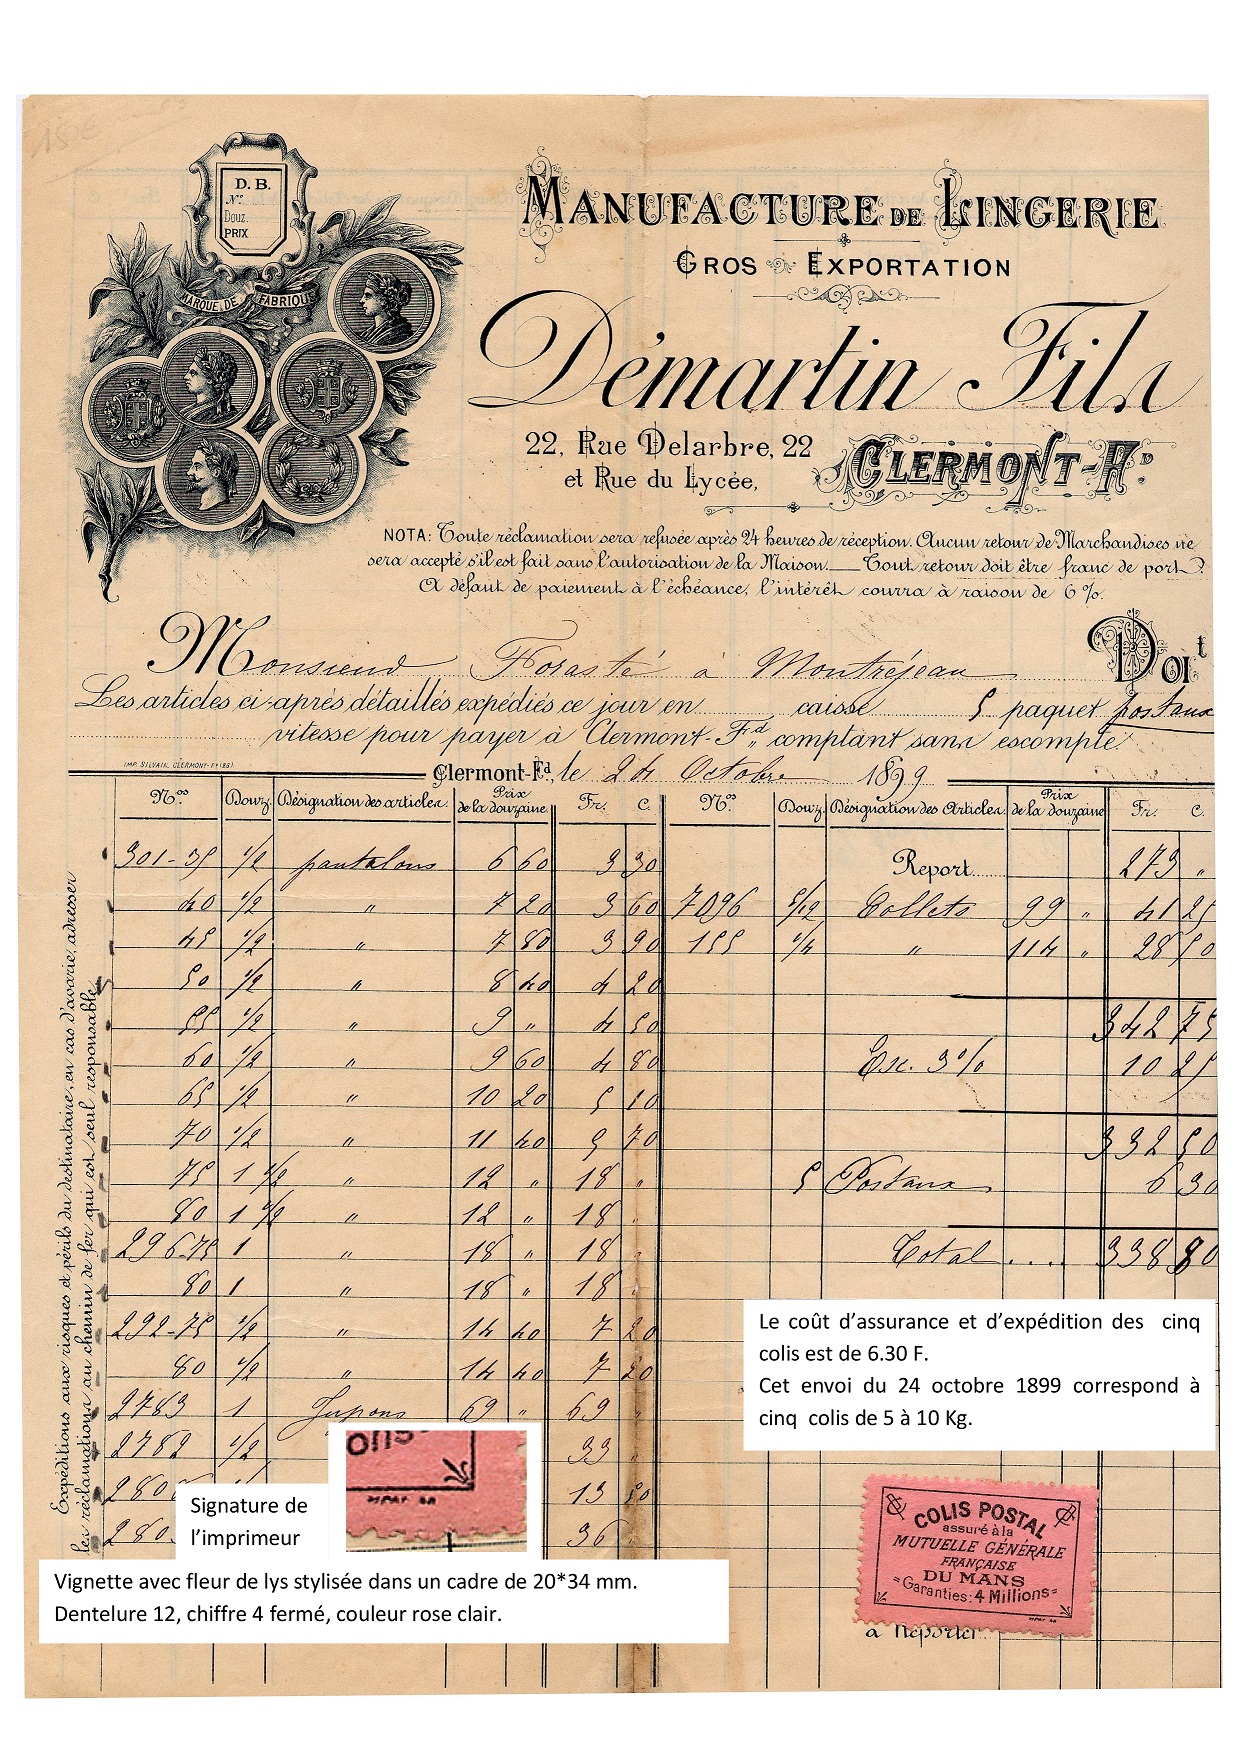 D. B.
N°
Douz.
PRIX
MARQUE DE FABRIQUE
MANUFACTURE DE LINGERIE
GROS EXPORTATION
Démartin Fils
22, Rue Delarbre, 22
et Rue du Lycée,
CLERMONT-Fd
NOTA: Toute réclamation sera refusée après 24 heures de réception. Aucun retour de Marchandises ne
sera accepté s'il est fait sans l'autorisation de la Maison. Tout retour doit être franc de port.
A défaut de paiement à l'échéance, l'intérêt courra à raison de 6 %.
Monsieur Forasté à Montréjeau Doit
Les articles ci-après détaillés expédiés ce jour en caisse 5 paquet postaux
vitesse pour payer à Clermont-Fd comptant sans escompte
IMP. SILVAIN. CLERMONT-Fd
Clermont-Fd, le 24 Octobre 1899
Nos Douz. Désignation des articles. Prix de la douzaine Fr. C. Nos Douz. Désignation des Articles. Prix de la douzaine Fr. C.
301-35 1/2 pantalons 6 60 3 30 Report 273 "
40 1/2 " 7 20 3 60 7096 5/12 Collets 99 " 41 25
45 1/2 " 7 80 3 90 155 1/4 " 114 " 28 50
50 1/2 " 8 40 4 20
55 1/2 " 9 " 4 50 342 75
60 1/2 " 9 60 4 80 Esc. 3% 10 25
65 1/2 " 10 20 5 10
70 1/2 " 11 40 5 70 332 50
75 1 1/2 " 12 " 18 " 5 Postaux 6 30
80 1 1/2 " 12 " 18 "
296-75 1 " 18 " 18 " Total .... 338 80
80 1 " 18 " 18 "
292-75 1/2 " 14 40 7 20
80 1/2 " 14 40 7 20
2783 1 Jupons 69 " 69 "
2782 1/2 33 "
280 13 50
280 36
Expéditions aux risques et périls du destinataire, en cas d'avarie, adresser
les réclamations au chemin de fer qui est seul responsable
Le coût d'assurance et d'expédition des cinq
colis est de 6.30 F.
Cet envoi du 24 octobre 1899 correspond à
cinq colis de 5 à 10 Kg.
Signature de
l'imprimeur
ons
Vignette avec fleur de lys stylisée dans un cadre de 20*34 mm.
Dentelure 12, chiffre 4 fermé, couleur rose clair.
COLIS POSTAL
assuré à la
MUTUELLE GÉNÉRALE
FRANÇAISE
DU MANS
=Garanties: 4 Millions=
à Reporter